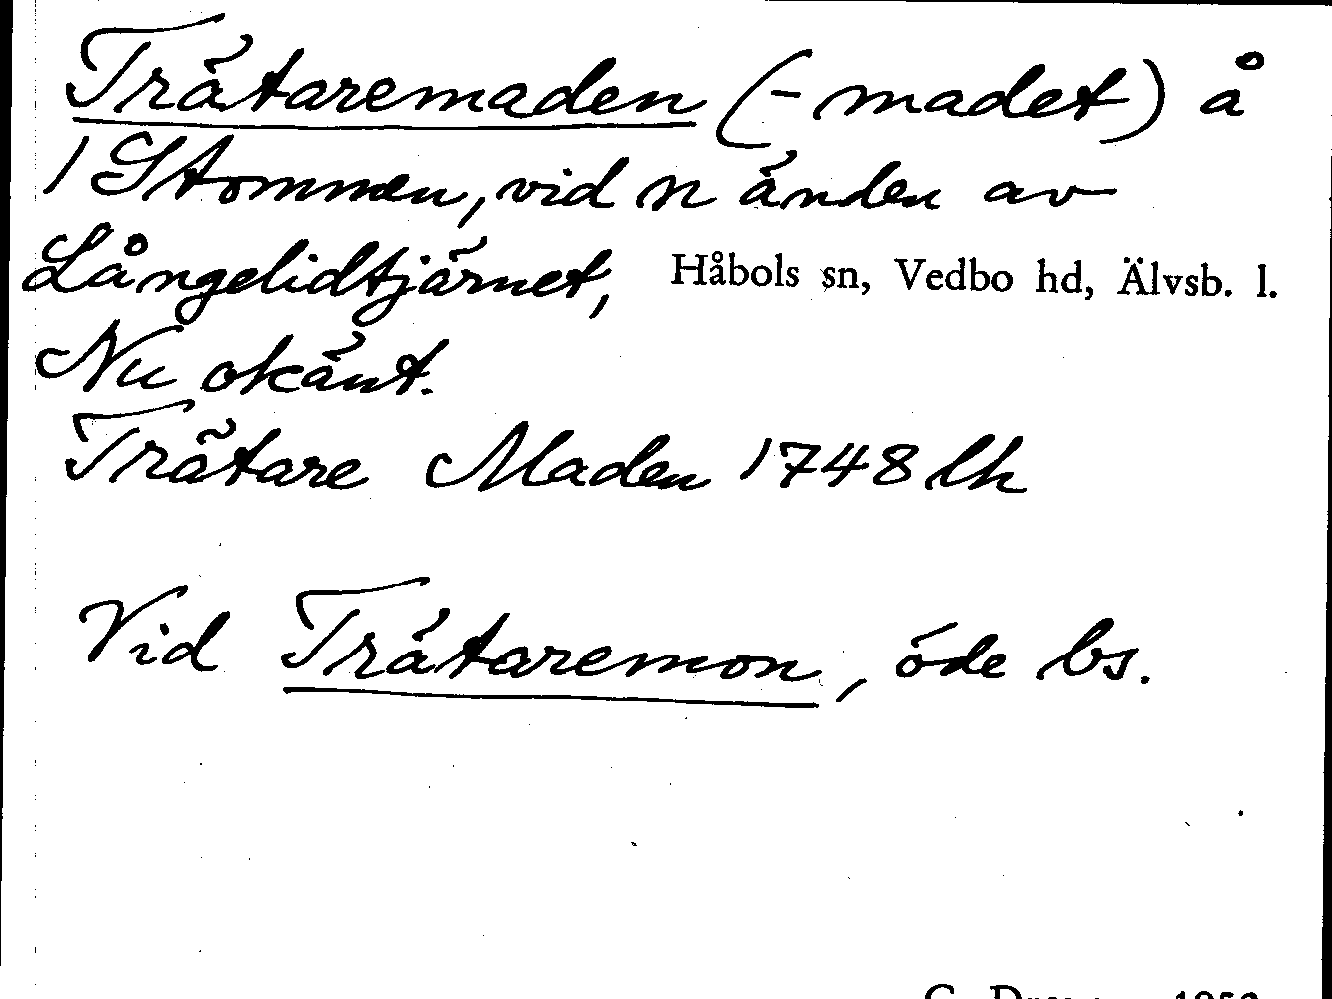 Trätaremaden (-madet) å
1 Stommen, vid n änden av
Långelidtjärnet, Håbols sn, Vedbo hd, Älvsb. l.
Nu okänt.
Trätare Maden 1748 lh
Vid Trätaremon, öde bs.